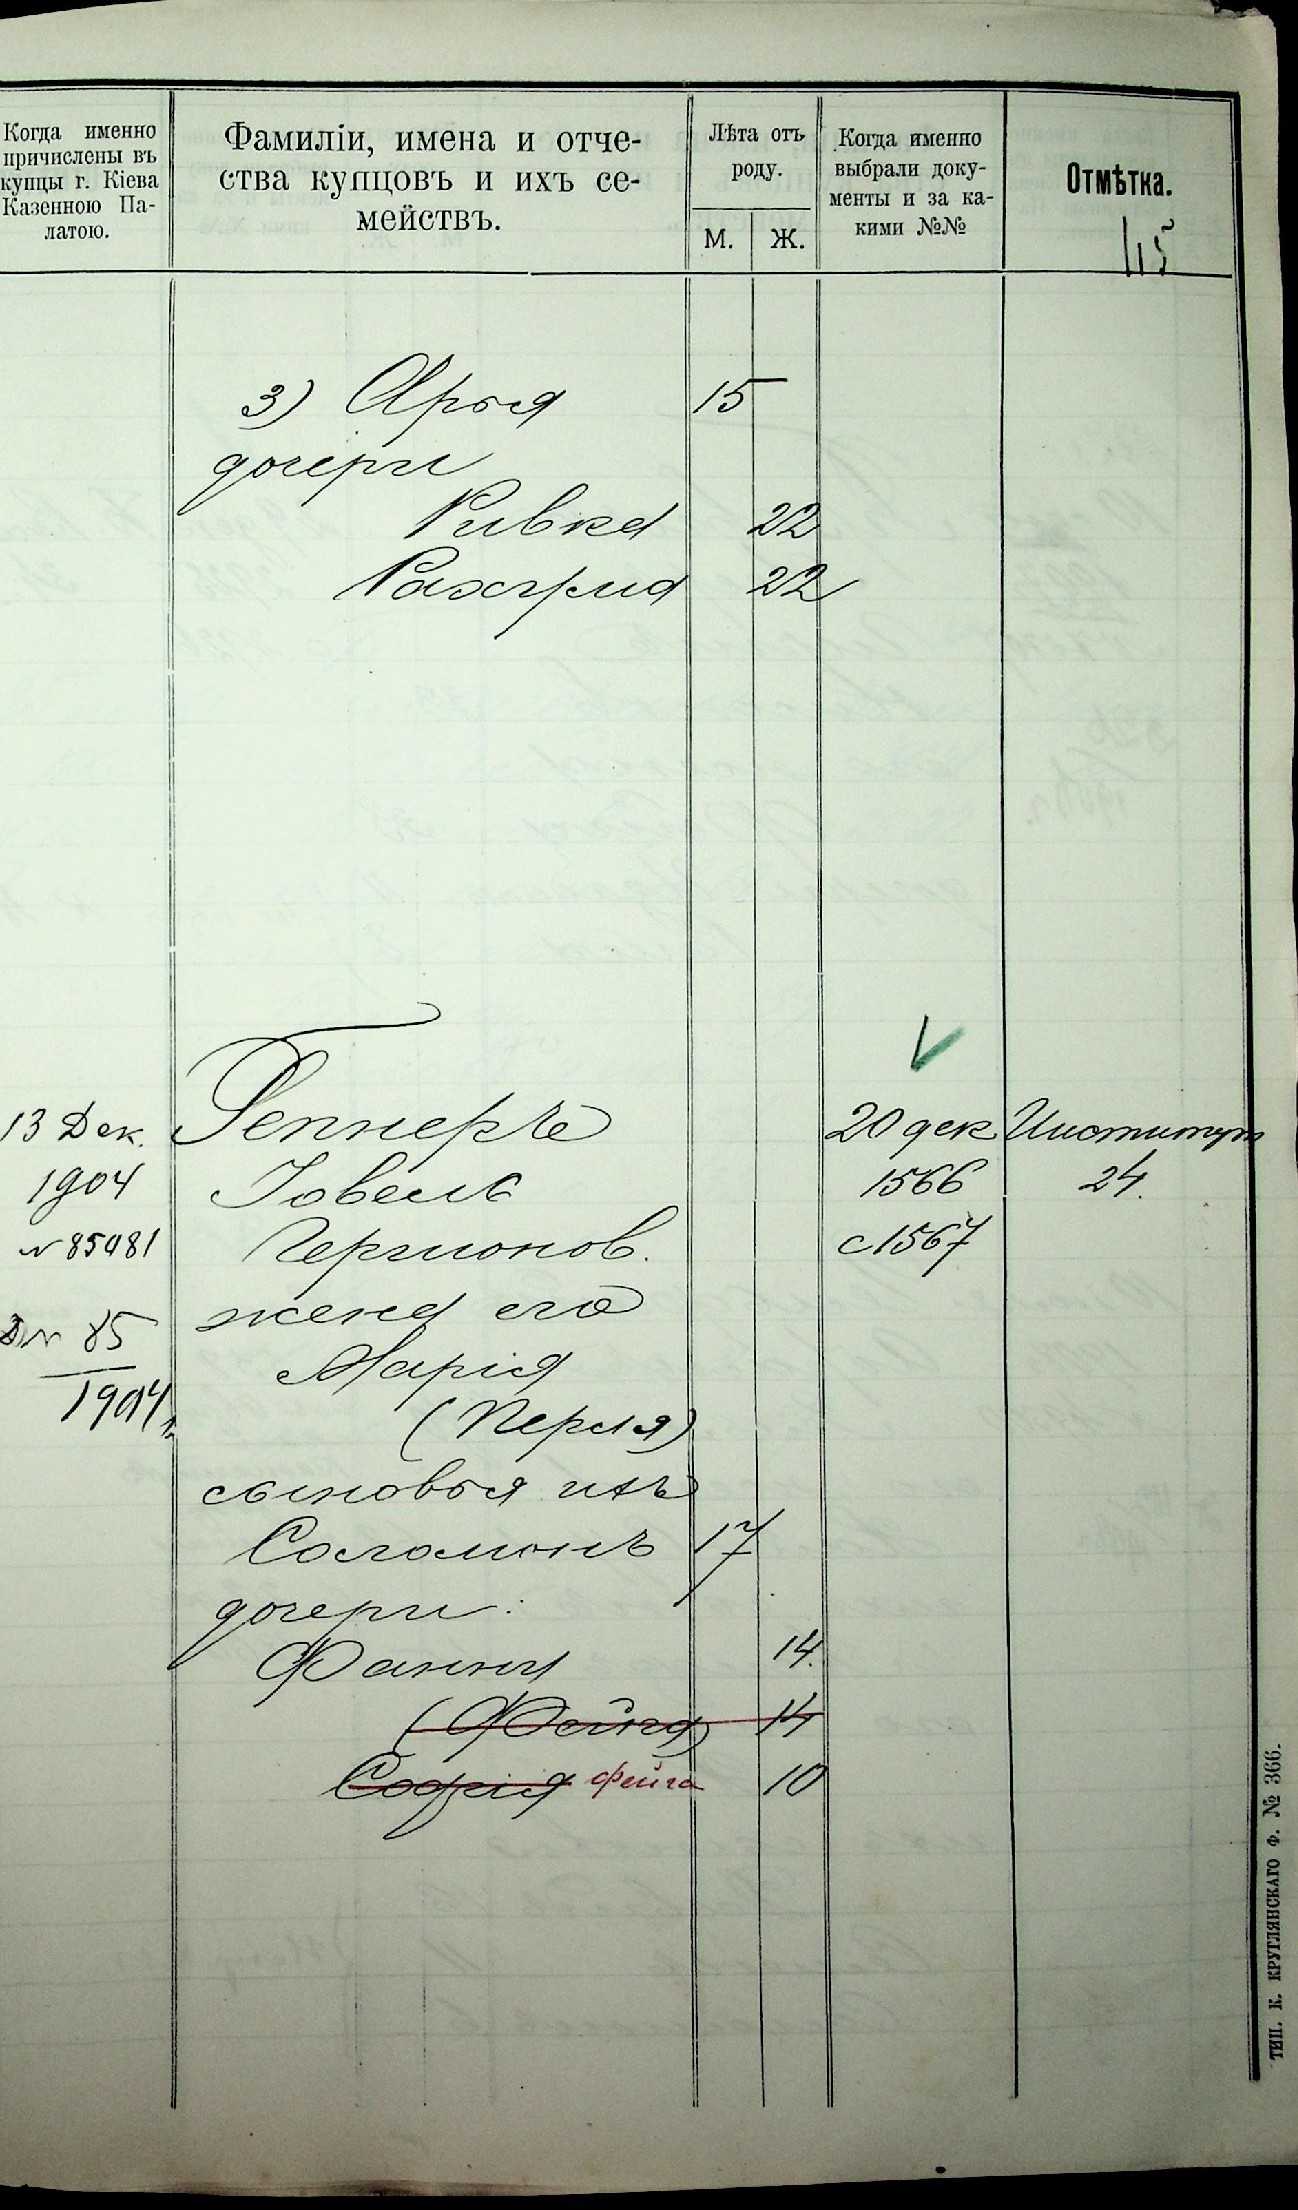 Когда именно
причислены въ
купцы г. Кіева
Казенною Па-
латою.
Фамиліи, имена и отче-
ства купцовъ и ихъ се-
мействъ.
Лѣта отъ
роду.
М. Ж.
Когда именно
выбрали доку-
менты и за ка-
кими №№
Отмѣтка.
115
3) Арья 15
дочери
Ривка 22
Рахиля 22
13 Дек. Геппнеръ 20 дек Институт
1904 Іовель 1566 24.
№ 85081 Гершонов. с 1567
жена его
85 Марія
1904 (Перля)
сыновья ихъ
Соломонъ 17
дочери:
Фанни 14.
(Фейга) 14
Софія Фейга 10
ТИП. К. КРУГЛЯНСКАГО Ф. № 366.